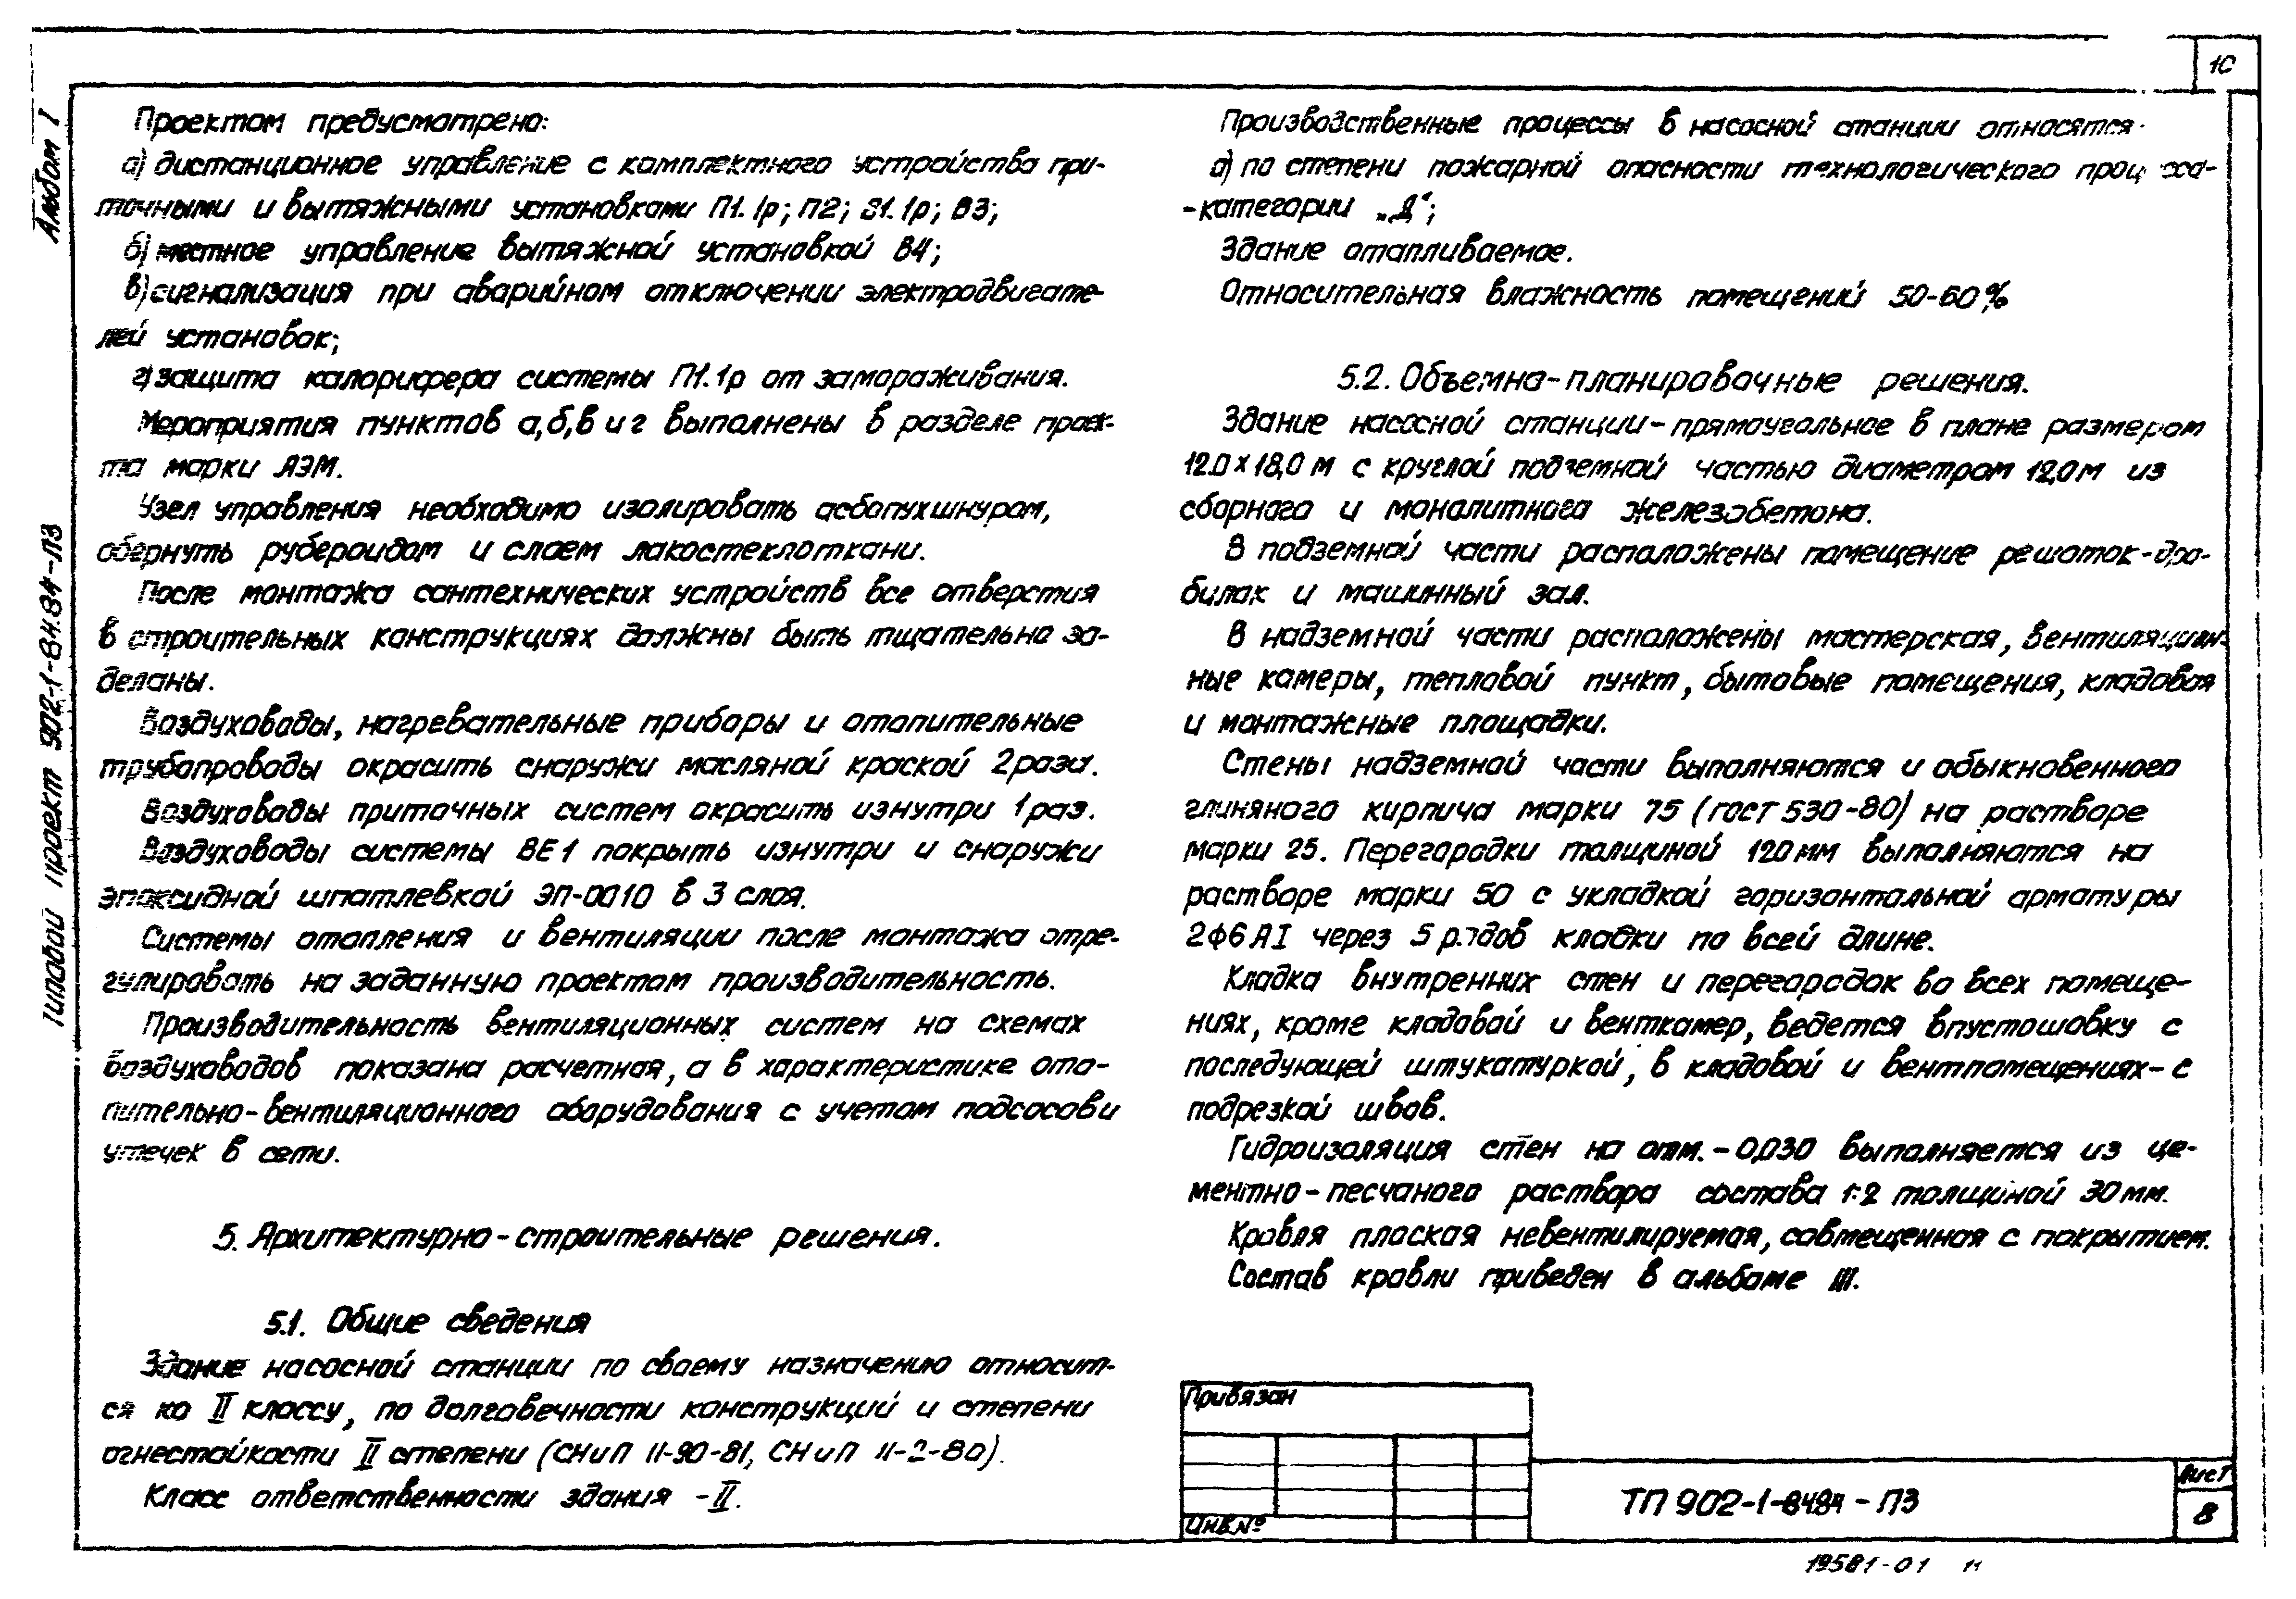 10
Альбом I
Типовой проект 902-1-84.84-ПЗ
Проектом предусмотрено:
а) дистанционное управление с комплектного устройства при-
точными и вытяжными установками П1.1р; П2; В1.1р; В3;
б) местное управление вытяжной установкой В4;
в) сигнализация при аварийном отключении электродвигате-
лей установок;
г) защита калорифера системы П1.1р от замораживания.
Мероприятия пунктов а,б,в и г выполнены в разделе проек-
та марки АЭМ.
Узел управления необходимо изолировать асбопухшнуром,
обернуть рубероидом и слоем лакостеклоткани.
После монтажа сантехнических устройств все отверстия
в строительных конструкциях должны быть тщательно за-
деланы.
Воздуховоды, нагревательные приборы и отопительные
трубопроводы окрасить снаружи масляной краской 2 раза.
Воздуховоды приточных систем окрасить изнутри 1 раз.
Воздуховоды системы ВЕ1 покрыть изнутри и снаружи
эпоксидной шпатлевкой ЭП-0010 в 3 слоя.
Системы отопления и вентиляции после монтажа отре-
гулировать на заданную проектом производительность.
Производительность вентиляционных систем на схемах
воздуховодов показана расчетная, а в характеристике ото-
пительно-вентиляционного оборудования с учетом подсосов и
утечек в сети.
5. Архитектурно-строительные решения.
5.1. Общие сведения
Здание насосной станции по своему назначению относит-
ся ко II классу, по долговечности конструкций и степени
огнестойкости II степени (СНиП II-90-81, СНиП II-2-80).
Класс ответственности здания -II.
Производственные процессы в насосной станции относятся:
а) по степени пожарной опасности технологического процесса-
-категории „Д“;
Здание отапливаемое.
Относительная влажность помещений 50-60%
5.2. Объемно-планировочные решения.
Здание насосной станции-прямоугольное в плане размером
12.0 х 18,0 м с круглой подземной частью диаметром 12,0 м из
сборного и монолитного железобетона.
В подземной части расположены помещение решоток-дро-
билок и машинный зал.
В надземной части расположены мастерская, вентиляцион-
ные камеры, тепловой пункт, бытовые помещения, кладовая
и монтажные площадки.
Стены надземной части выполняются и обыкновенного
глиняного кирпича марки 75 (ГОСТ 530-80) на растворе
марки 25. Перегородки толщиной 120 мм выполняются на
растворе марки 50 с укладкой горизонтальной арматуры
2ф6 АI через 5 рядов кладки по всей длине.
Кладка внутренних стен и перегородок во всех помеще-
ниях, кроме кладовой и венткамер, ведется впустошовку с
последующей штукатуркой, в кладовой и вентпомещениях-с
подрезкой швов.
Гидроизоляция стен на отм.-0,030 выполняется из це-
ментно-песчаного раствора состава 1:2 толщиной 30 мм.
Кровля плоская невентилируемая, совмещенная с покрытием.
Состав кровли приведен в альбоме III.
Привязан
Инв.№
ТП 902-1-84.84-ПЗ
Лист
8
19581-01 11